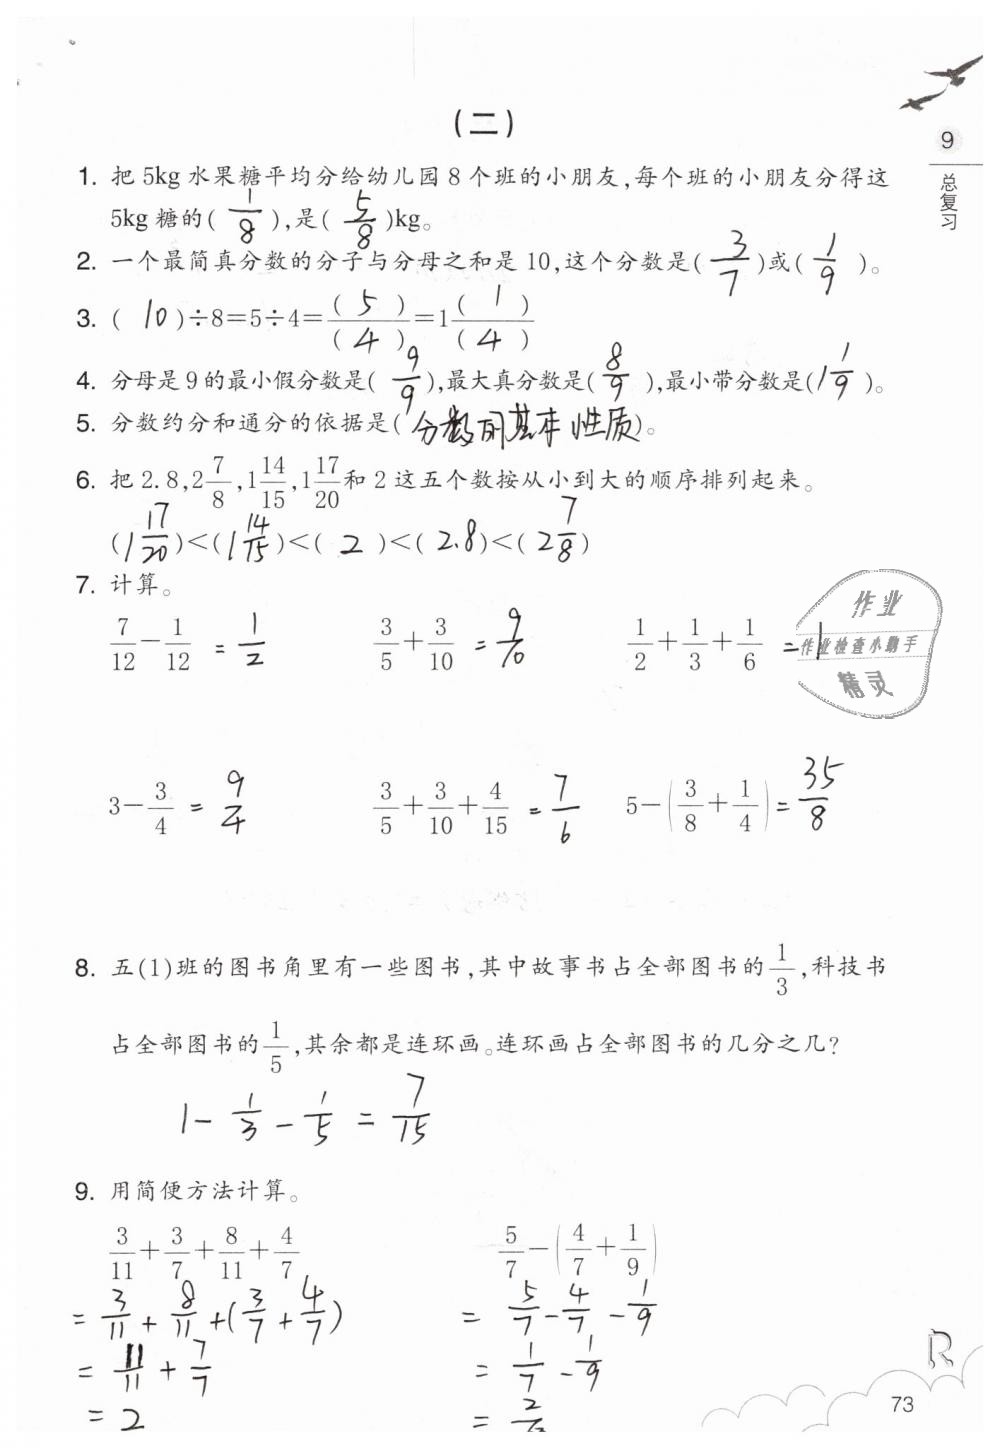 (二)
9
总复习
1. 把 5kg 水果糖平均分给幼儿园 8 个班的小朋友,每个班的小朋友分得这
5kg 糖的( 1/8 ),是( 5/8 )kg。
2. 一个最简真分数的分子与分母之和是 10,这个分数是( 3/7 )或( 1/9 )。
3. ( 10 )÷8=5÷4=( 5 )/( 4 )=1( 1 )/( 4 )
4. 分母是 9 的最小假分数是( 9/9 ),最大真分数是( 8/9 ),最小带分数是(1 1/9 )。
5. 分数约分和通分的依据是( 分数的基本性质)。
6. 把 2.8,2 7/8,1 14/15,1 17/20 和 2 这五个数按从小到大的顺序排列起来。
(1 17/20)<(1 14/15)<( 2 )<( 2.8)<( 2 7/8)
7. 计算。
7/12-1/12 =1/2 3/5+3/10 =9/10 1/2+1/3+1/6 =1
作业
作业检查小助手
精灵
3-3/4 =9/4 3/5+3/10+4/15 =7/6 5-(3/8+1/4)=35/8
8. 五(1)班的图书角里有一些图书,其中故事书占全部图书的1/3,科技书
占全部图书的1/5,其余都是连环画。连环画占全部图书的几分之几?
1-1/3-1/5=7/15
9. 用简便方法计算。
3/11+3/7+8/11+4/7 5/7-(4/7+1/9)
=3/11+8/11+(3/7+4/7) =5/7-4/7-1/9
=11/11+7/7 =1/7-1/9
=2 =2/
R
73